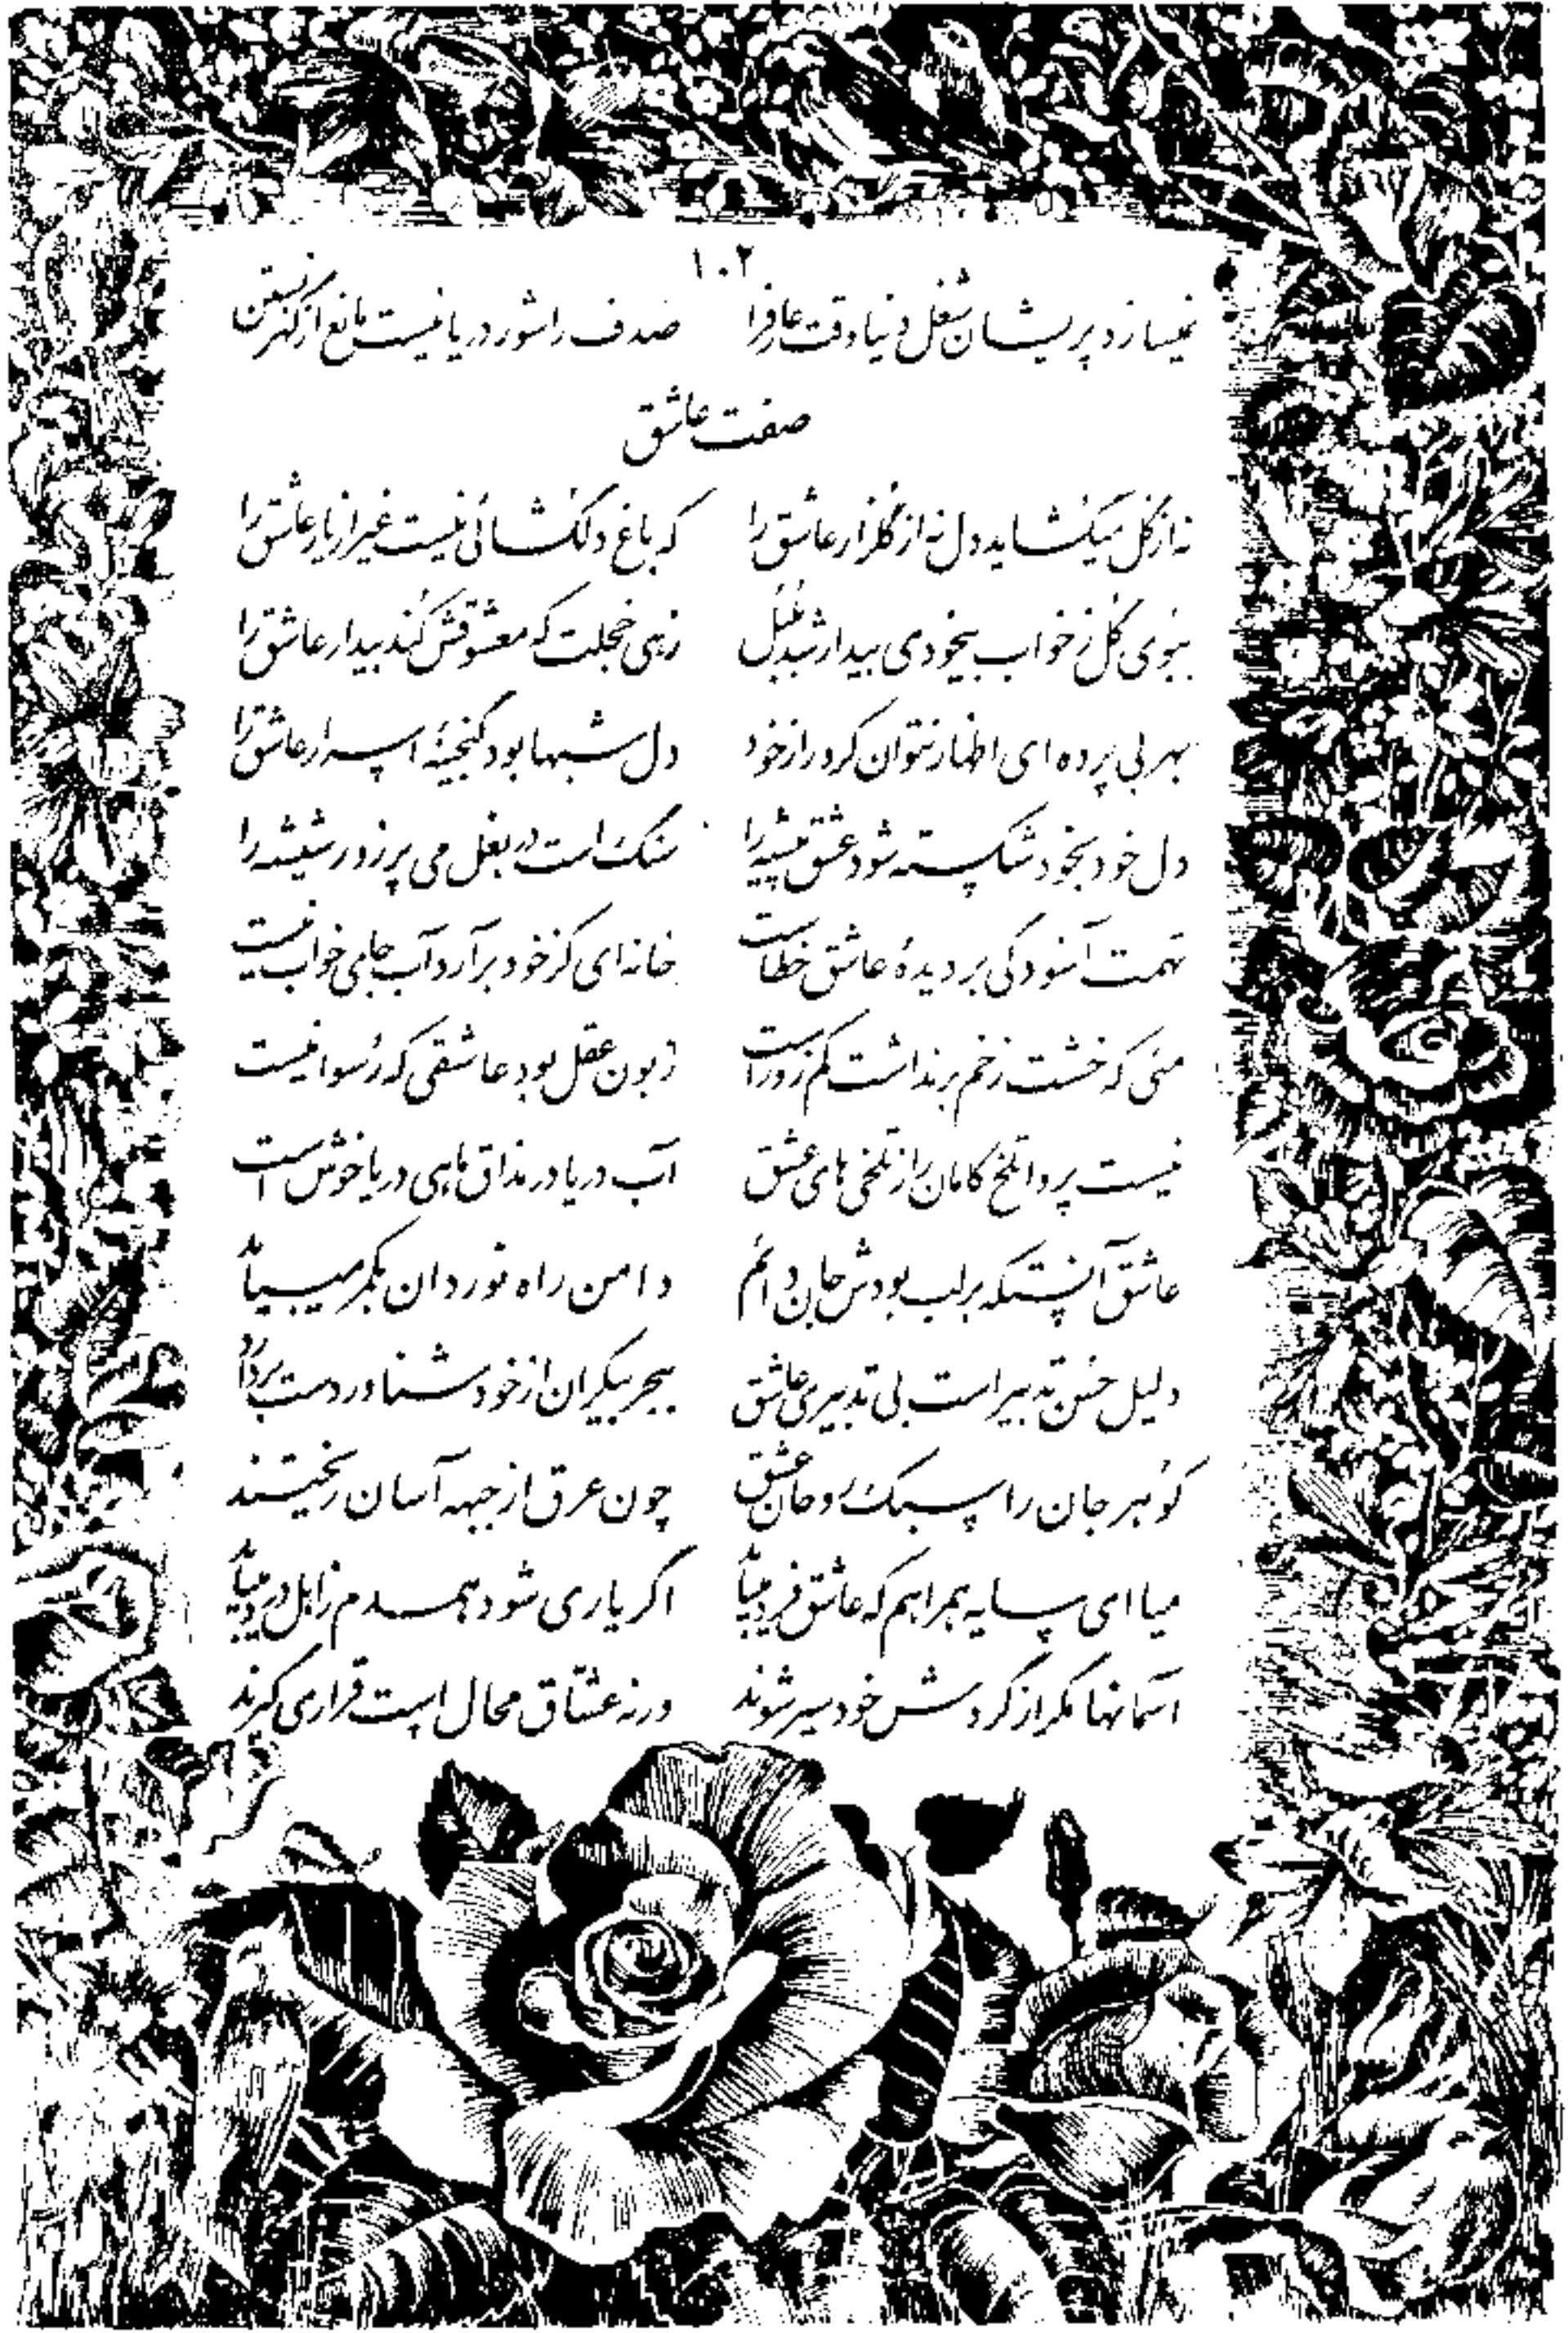 ۱۰۲
نمیسازد پریشان شغل دنیا وقت عارف را صدف را شور دریا نیست مانع از گهر بستن
صفت عاشق
نه از گل میگشاید دل نه از گلزار عاشق را که باغ دلگشائی نیست غیر از یار عاشق را
ببوی گل ز خواب بیخودی بیدار شد بلبل زهی خجلت که معشوقش کند بیدار عاشق را
بهر بی پرده ای اظهار نتوان کرد راز خود دل شبها بود گنجینهٔ اسرار عاشق را
دل خود بخود شکسته شود عشق پیشه را سنگ است در بغل می پرزور شیشه را
تهمت آسودگی بر دیدهٔ عاشق خطاست خانه ای کز خود برآرد آب جای خواب نیست
مئی که خشت ز خم برنداشت کم زور است زبون عقل بود عاشقی که رسوا نیست
نیست پروا تلخ کامان را ز تلخی های عشق آب دریا در مذاق ماهی دریا خوش است
عاشق آنستکه بر لب بودش جان دائم دامن راه نوردان بکمر میباید
دلیل حسن تدبیر است بی تدبیری عاشق ببحر بیکران از خود شناور دست بردارد
گوهر جان را سبک روحان عشق چون عرق از جبهه آسان ریختند
میا ای سایه همراهم که عاشق فرد میباید اگر یاری شود همدم ز اهل درد میباید
آسمانها مگر از گردش خود سیر شوند ورنه عشاق محال است قراری گیرند